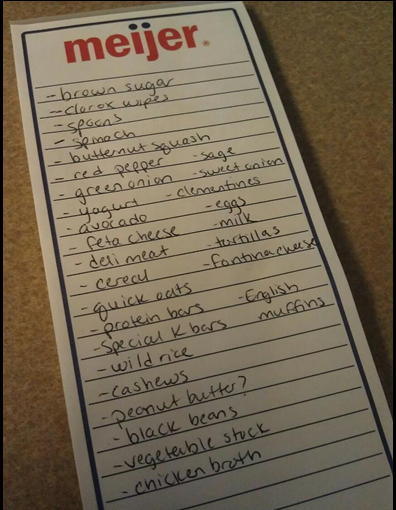 meijer
- brown sugar
- clorox wipes
- spoons
- spinach
- butternut squash
- red pepper - sage
- green onion - sweet onion
- yogurt - clementines
- avocado - eggs
- feta cheese - milk
- deli meat - tortillas
- cereal - fontina cheese
- quick oats
- protein bars - English
- Special K bars muffins
- wild rice
- cashews
- peanut butter?
- black beans
- vegetable stock
- chicken broth